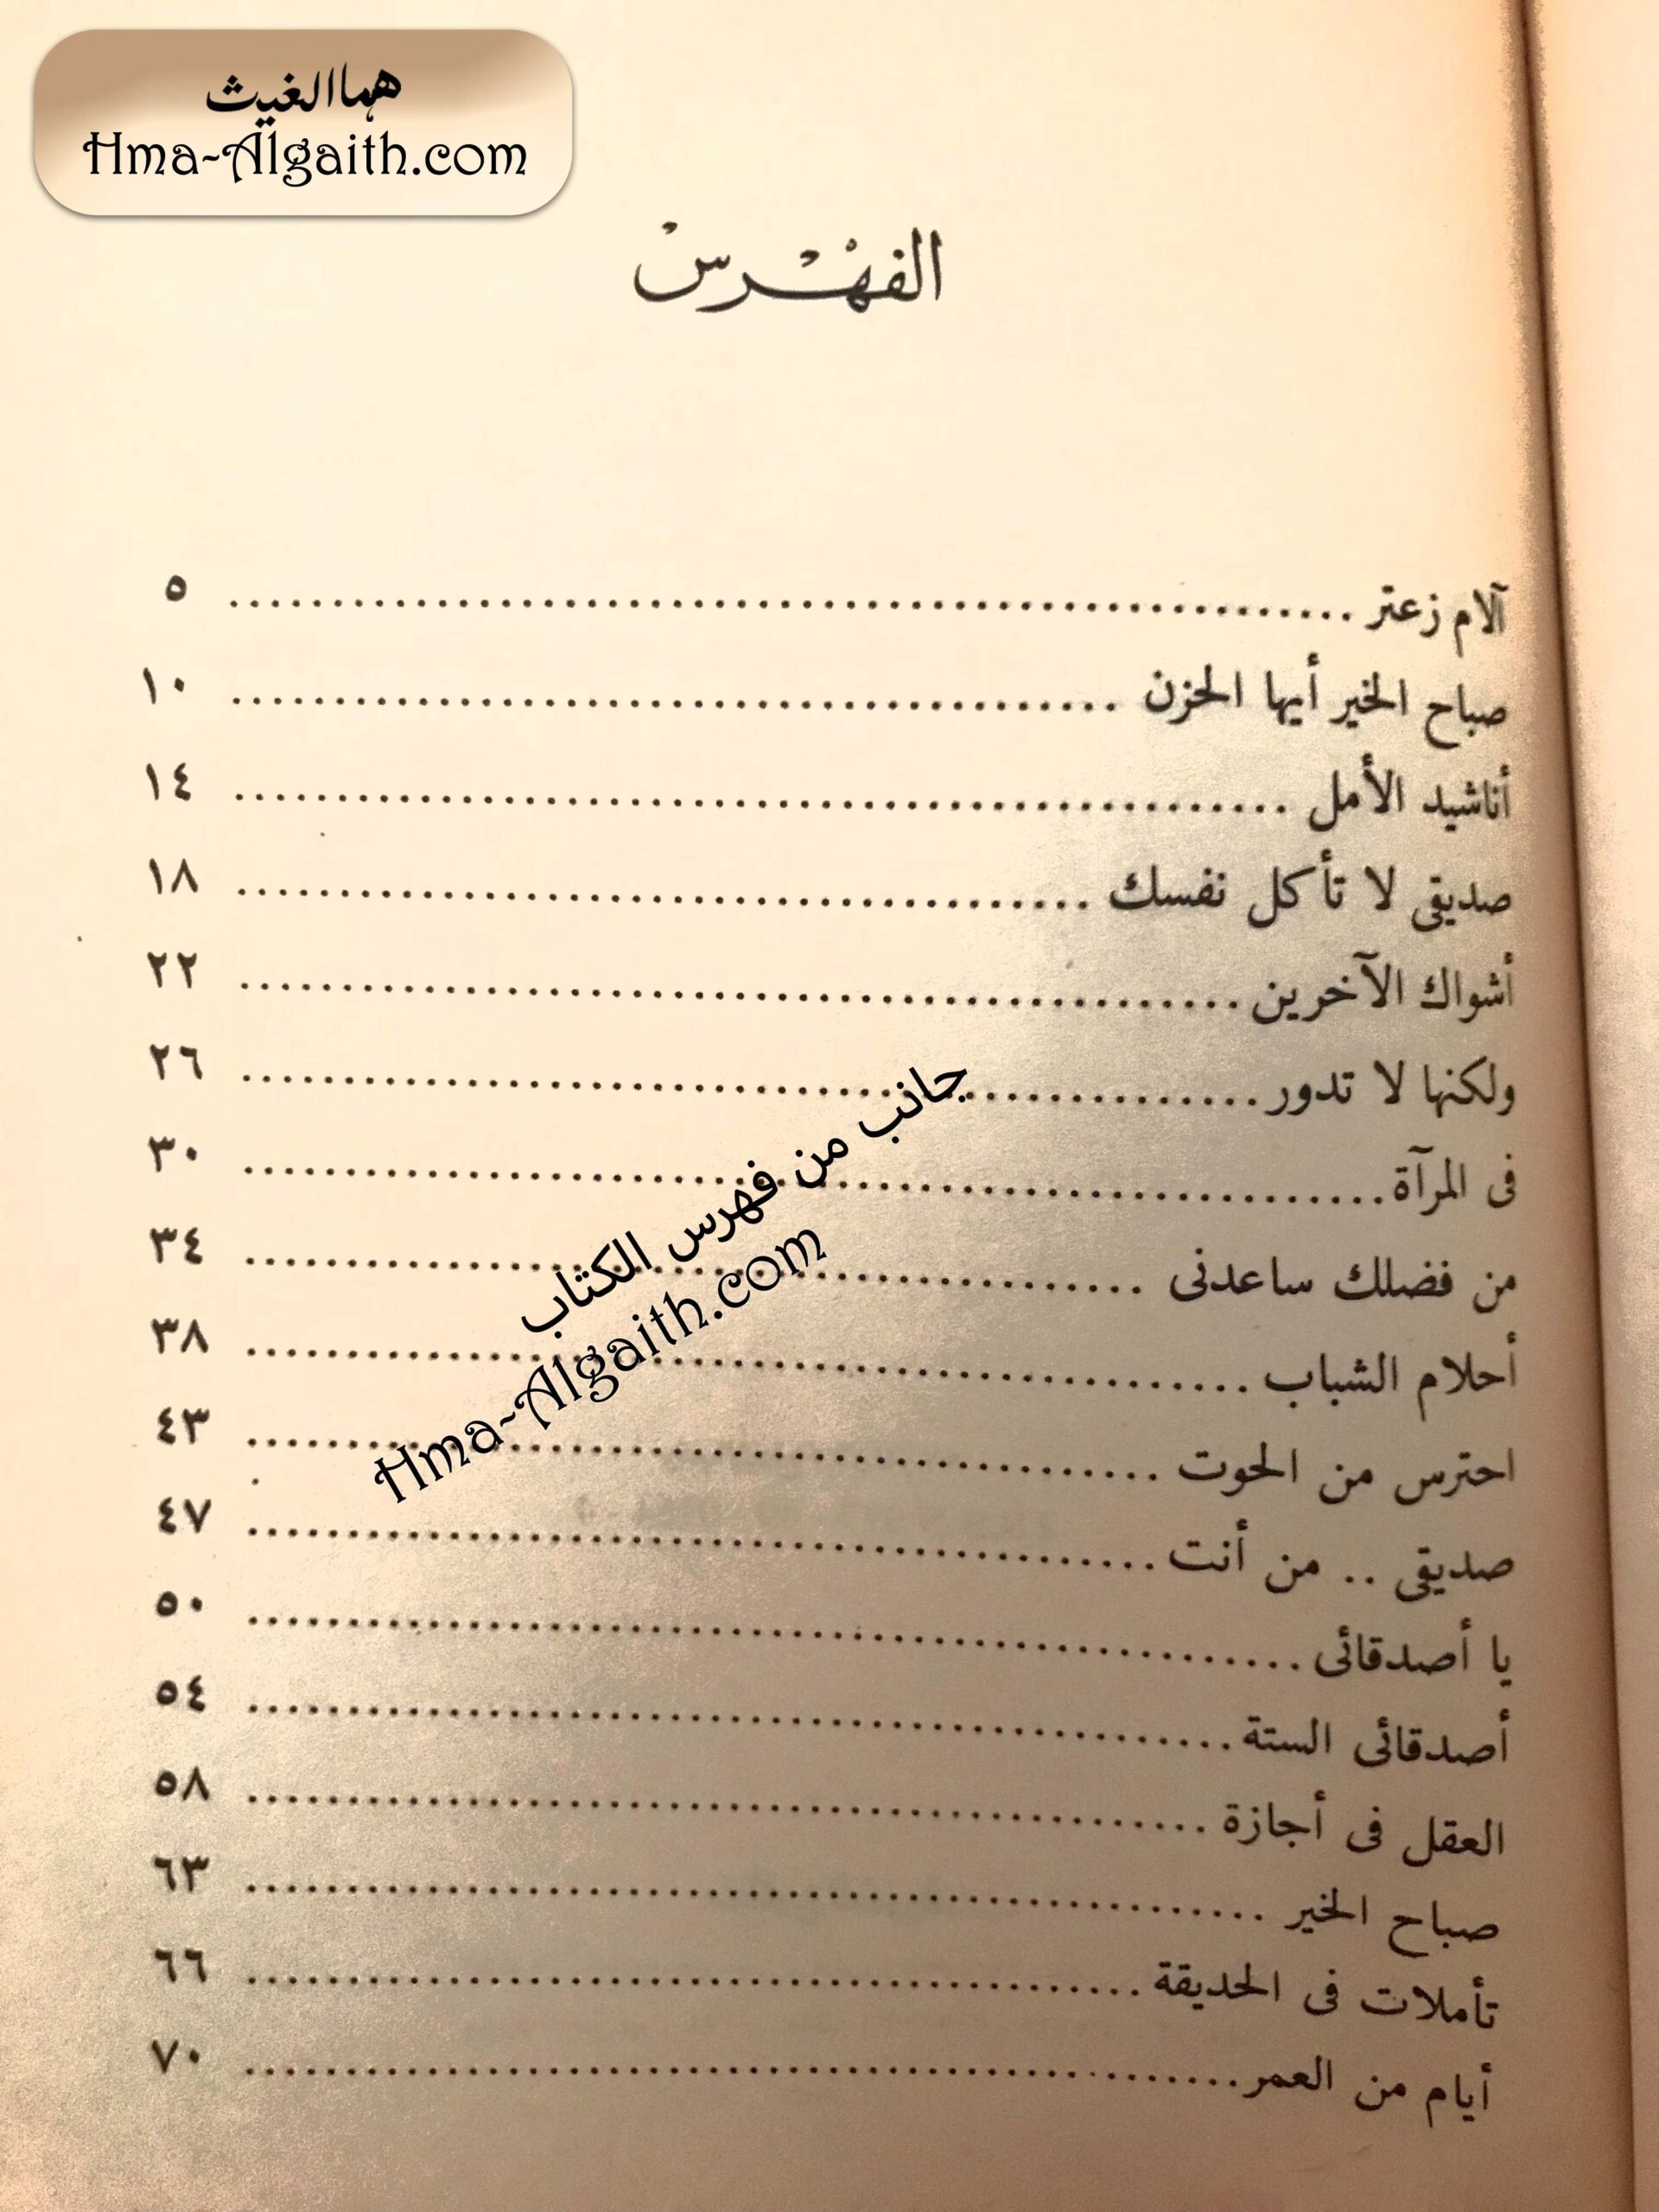 هماالغيث
Hma-Algaith.com
الفهْرسْ
آلام زعتر ........................................ ٥
صباح الخير أيها الحزن ........................................ ١٠
أناشيد الأمل ........................................ ١٤
صديقى لا تأكل نفسك ........................................ ١٨
أشواك الآخرين ........................................ ٢٢
ولكنها لا تدور ........................................ ٢٦
فى المرآة ........................................ ٣٠
من فضلك ساعدنى ........................................ ٣٤
أحلام الشباب ........................................ ٣٨
احترس من الحوت ........................................ ٤٣
صديقى .. من أنت ........................................ ٤٧
يا أصدقائى ........................................ ٥٠
أصدقائى الستة ........................................ ٥٤
العقل فى أجازة ........................................ ٥٨
صباح الخير ........................................ ٦٣
تأملات فى الحديقة ........................................ ٦٦
أيام من العمر ........................................ ٧٠
جانب من فهرس الكتاب
Hma-Algaith.com